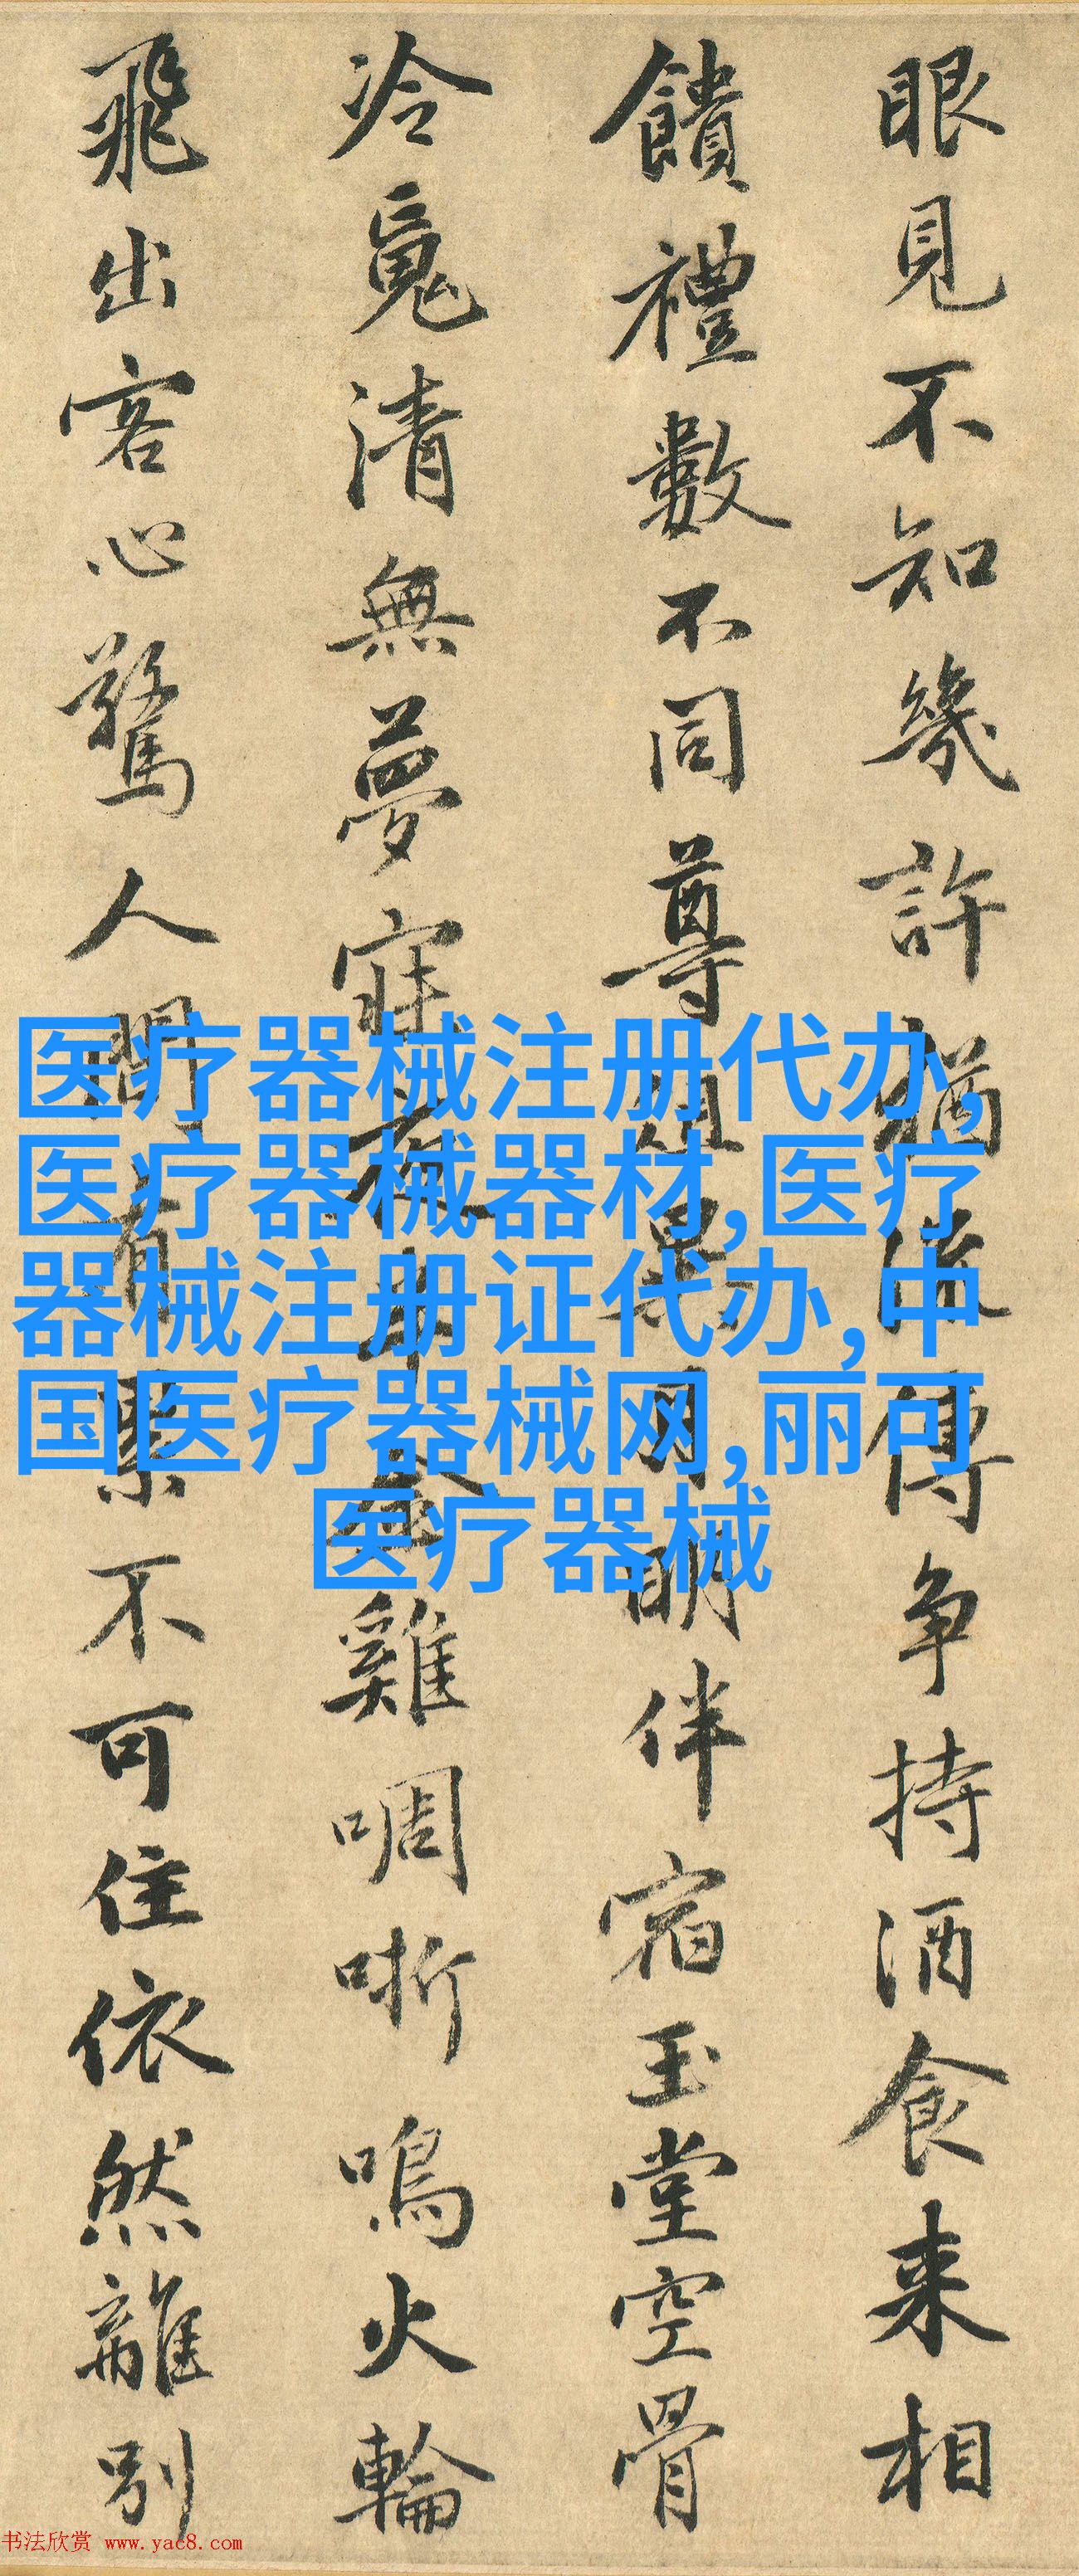 眼見不知幾許猶流傳争持酒食来相
饋禮數不同尊俎異月明伴宿玉堂空骨
冷魂清無夢寐夜半金雞啁哳鳴火輪
飛出客心驚人間有累不可住依然離別
医疗器械注册代办,
医疗器械器材,医疗
器械注册证代办,中
国医疗器械网,丽可
医疗器械
书法欣赏 www.yac8.com